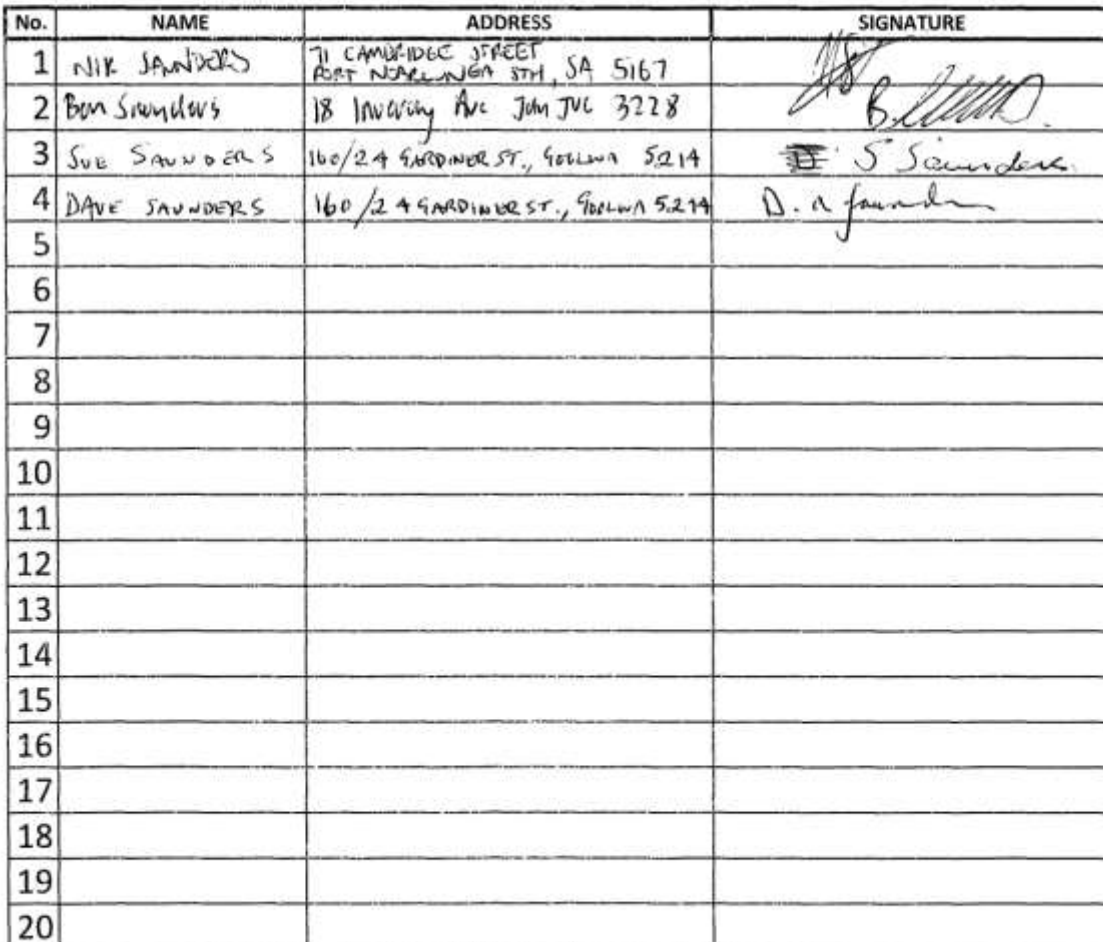 No. NAME ADDRESS SIGNATURE
1 NIK SAUNDERS 71 CAMBRIDGE STREET
PORT NOARLUNGA STH, SA 5167
2 Ben Saunders 18 Ave Jan Juc 3228 B.
3 SUE SAUNDERS 160/24 GARDINER ST., GOOLWA 5214 S Saunders
4 DAVE SAUNDERS 160/24 GARDINER ST., GOOLWA 5214 D. A Saunders
5
6
7
8
9
10
11
12
13
14
15
16
17
18
19
20